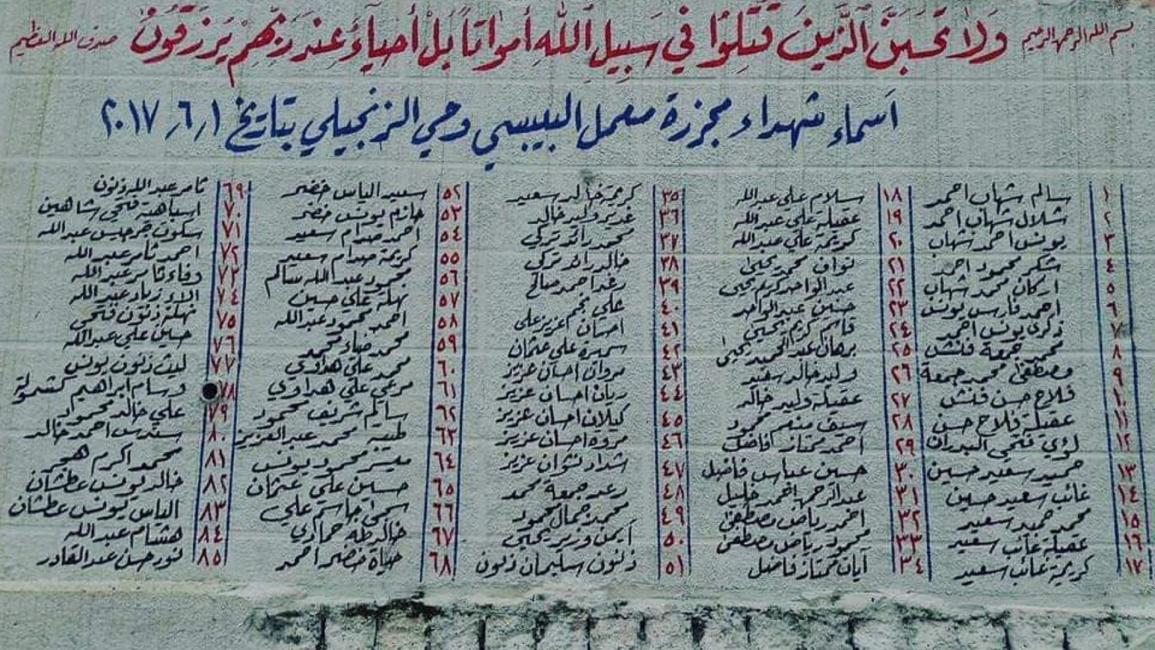 بسم الله الرحمن الرحيم ولا تحسبن الذين قتلوا في سبيل الله أمواتا بل أحياء عند ربهم يرزقون صدق الله العظيم
أسماء شهداء مجزرة معمل البيبسي وحي الزنجيلي بتاريخ ٢٠١٧/٦/١
١ سالم شهاب احمد
٢ شلال شهاب احمد
٣ يونس احمد شهاب
٤ شكر محمود احمد
٥ اركان محمد شهاب
٦ احمد فارس يونس
٧ ذكرى يونس احمد
٨ محمد جمعة فنش
٩ مصطفى محمد جمعة
١٠ فلاح حسن فنش
١١ عقيلة فلاح حسن
١٢ لؤي فتحي البدران
١٣ حميد سعيد حسين
١٤ غائب سعيد حسين
١٥ محمد حميد سعيد
١٦ عقيلة غائب سعيد
١٧ كريمة غائب سعيد
١٨ سلام علي عبدالله
١٩ عقيلة علي عبدالله
٢٠ كريمة علي عبدالله
٢١ نوان محمد يحيى
٢٢ عبدالواحد كريم يحيى
٢٣ حنين عبدالواحد
٢٤ قاسم كريم يحيى
٢٥ برهان عبدالحميد يحيى
٢٦ وليد خالد سعيد
٢٧ عقيلة وليد خالد
٢٨ سيف منعم محمود
٢٩ احمد ممتاز فاضل
٣٠ حسين عباس فاضل
٣١ عبدالرحمن احمد خليل
٣٢ احمد رياض مصطفى
٣٣ محمود رياض مصطفى
٣٤ آيان ممتاز فاضل
٣٥ كريمة خالد سعيد
٣٦ غدير وليد خالد
٣٧ محمد رائد تركي
٣٨ خالد رائد تركي
٣٩ رعد احمد صالح
٤٠ علي نجم عزيز علي
٤١ احسان عزيز علي
٤٢ سميرة علي عثمان
٤٣ مروان احسان عزيز
٤٤ ريان احسان عزيز
٤٥ كيلان احسان عزيز
٤٦ مروة احسان عزيز
٤٧ شداد نشوان عزيز
٤٨ رعد جمعة محمد
٤٩ محمد جمال محمود
٥٠ ايمن وزير يحيى
٥١ ذنون سليمان ذنون
٥٢ سعيد الياس خضر
٥٣ حازم يونس خضر
٥٤ احمد صدام سعيد
٥٥ كريمة صدام سعيد
٥٦ محمود عبدالله سالم
٥٧ نهلة علي حسين
٥٨ احمد محمود عبدالله
٥٩ محمد ضياء محمد
٦٠ محمد علي هداوي
٦١ مرعي علي هداوي
٦٢ سالم شريف محمود
٦٣ طيبة محمد عبدالعزيز
٦٤ معتز محمود يونس
٦٥ حسين علي عثمان
٦٦ سجى جاسم علي
٦٧ خالد طه حمادي
٦٨ حياة خضر احمد
٦٩ ثامر عبدالله ذنون
٧٠ اسباهية فتحي شاهين
٧١ سكون خميس عبدالله
٧٢ احمد ثامر عبدالله
٧٣ وفاء ثامر عبدالله
٧٤ زياد عبدالله
٧٥ نهلة ذنون فتحي
٧٦ حسين علي عبدالله
٧٧ ليث ذنون يونس
٧٨ وسام ابراهيم كشمولة
٧٩ علي خالد محمود
٨٠ سندس احمد خالد
٨١ محمد اكرم هجر
٨٢ خالد يونس عطشان
٨٣ الياس يونس عطشان
٨٤ هشام عبدالله
٨٥ نور حسن عبدالقادر